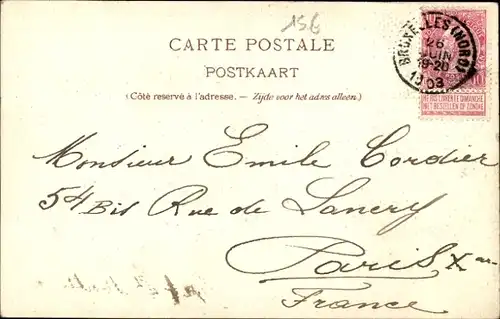 156
CARTE POSTALE
POSTKAART
(Côté reservé à l'adresse. – Zijde voor het adres alleen.)
BRUXELLES (NORD)
26
JUIN
19-20
1903
10
NE PAS LIVRER LE DIMANCHE
NIET BESTELLEN OP ZONDAG
Monsieur Emile Cordier
54 Bis Rue de Lancry
Paris X ar.
France